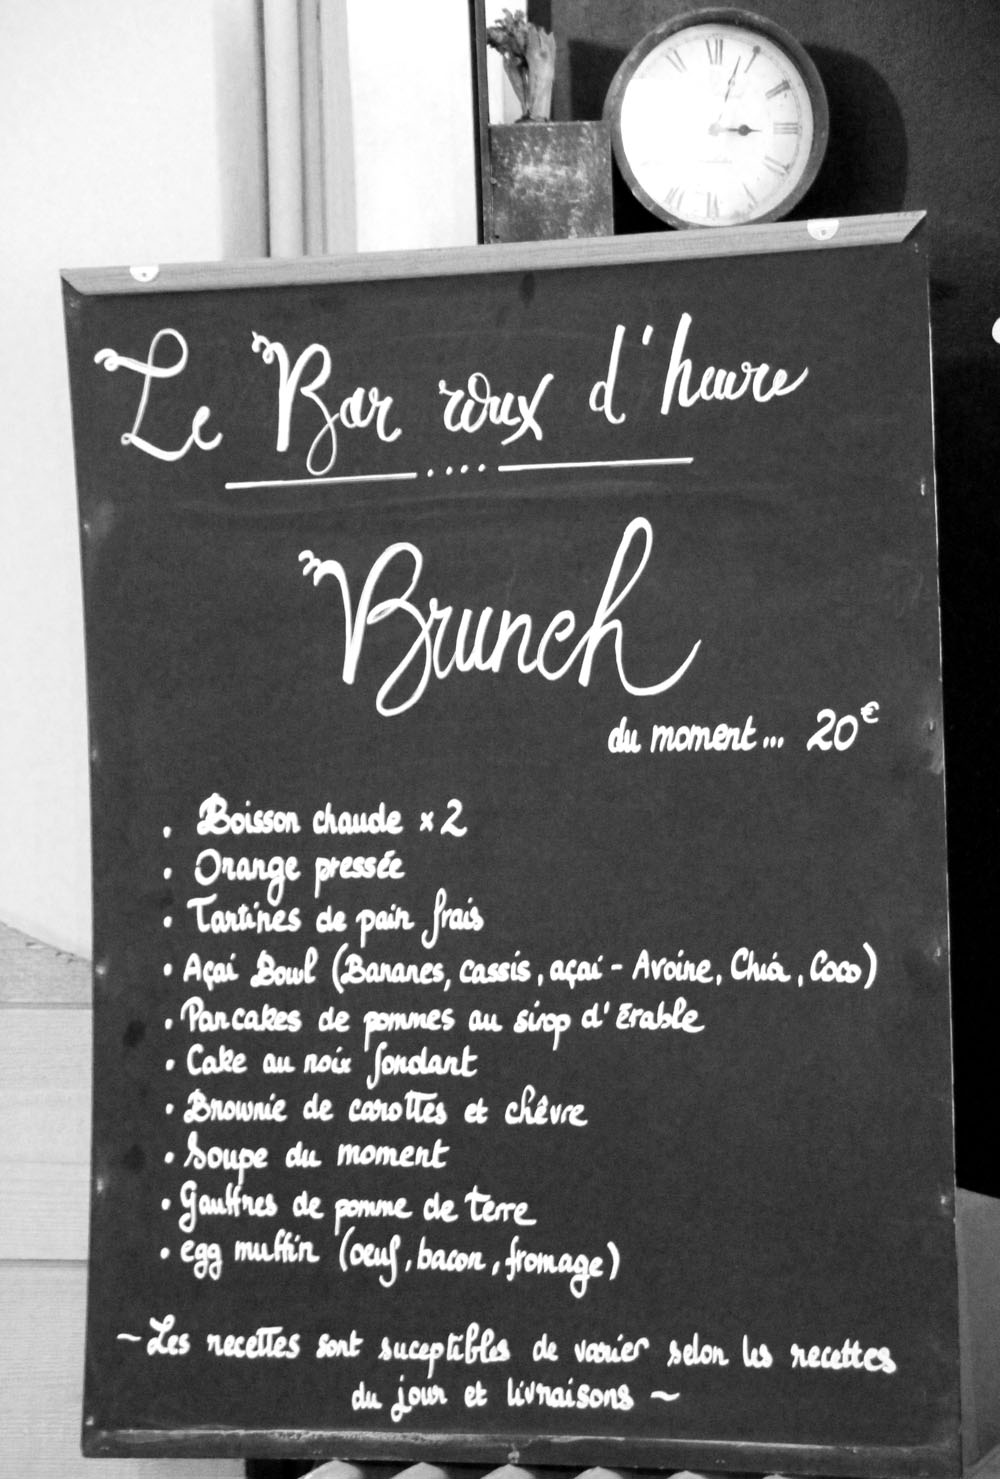 Le Bar roux d'heure
Brunch
du moment... 20€
• Boisson chaude x 2
• Orange pressée
• Tartines de pain frais
• Açai Bowl (Bananes, cassis, açai - Avoine, Chia, Coco)
• Pancakes de pommes au sirop d'érable
• Cake au noix fondant
• Brownie de carottes et chêvre
• Soupe du moment
• Gauffres de pomme de terre
• egg muffin (oeuf, bacon, fromage)
~ Les recettes sont suceptibles de varier selon les recettes
du jour et livraisons ~